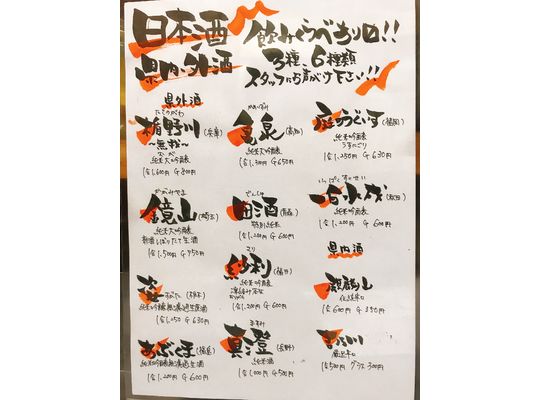 日本酒
県内・外酒
飲みくらべあり〼!!
3種、6種類
スタッフにお声がけ下さい!!!
県外酒
たてのがわ
楯野川(兵庫)
~無我~
純米大吟醸
1合1,600円 G800円
亀泉(高知)
純米大吟醸
1合1,300円 G650円
庭のうぐいす(福岡)
純米吟醸
うすにごり
1合1,250円 G630円
かがみやま
鏡山(埼玉)
純米大吟醸
新酒しぼりたて生酒
1合1,500円 G750円
でんしゅ
田酒(青森)
特別純米
1合1,200円 G600円
いっぱくすいせい
一白水成(秋田)
純米吟醸
1合1,200円 G600円
(栃木)
1合1,250円 G630円
紗利(福井)
純米吟醸
1合1,200円 G600円
県内酒
1合600円 G350円
あぶくま(福島)
純米吟醸無濾過生酒
1合1,200円 G600円
ますみ
真澄(長野)
純米酒
1合1,000円 G500円
1合500円 グラス300円